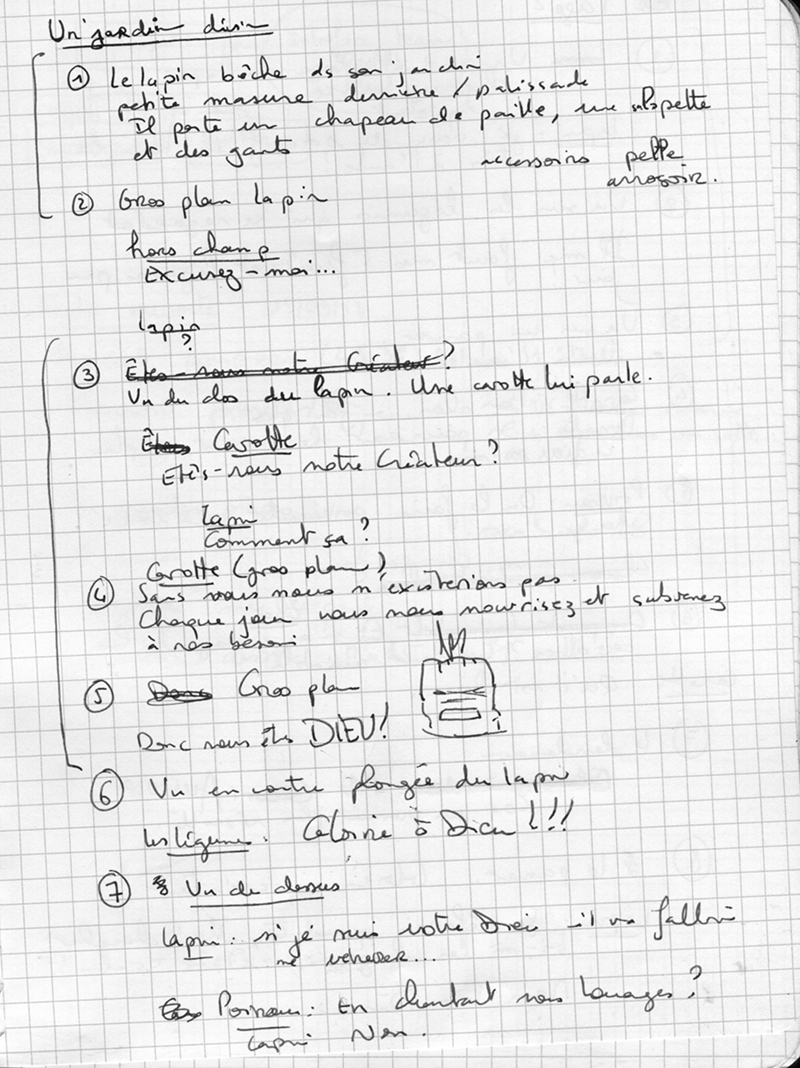 Un jardin divin
① Le lapin bêche ds son jardin
petite masure derrière / palissade
Il porte un chapeau de paille, une salopette
et des gants
accessoires pelle
arrosoir.
② Gros plan lapin
hors champ
Excusez-moi...
lapin
?
③ Êtes-vous notre Créateur ?
Vu du dos du lapin. Une carotte lui parle.
Carotte
Etês-vous notre Créateur ?
lapin
Comment ça ?
Carotte (gros plan)
④ Sans vous nous n'existerions pas
Chaque jour vous nous nourrisez et subvenez
à nos besoin
⑤ Gros plan
Donc vous êtes DIEU !
⑥ Vu en contre plongée du lapin
les légumes. Gloire ô Dieu !!!
⑦ Vu de dessus
lapin : si je suis votre Dieu il va falloir
me vénérer...
Poireau : En chantant vos louages ?
lapin Non.